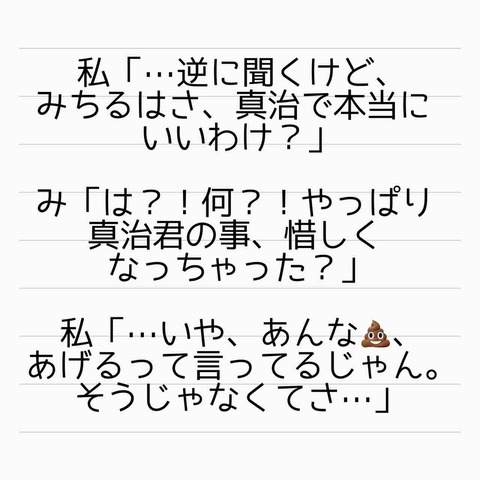 私「…逆に聞くけど、
みちるはさ、真治で本当に
いいわけ？」
み「は？！何？！やっぱり
真治君の事、惜しく
なっちゃった？」
私「…いや、あんな💩、
あげるって言ってるじゃん。
そうじゃなくてさ…」